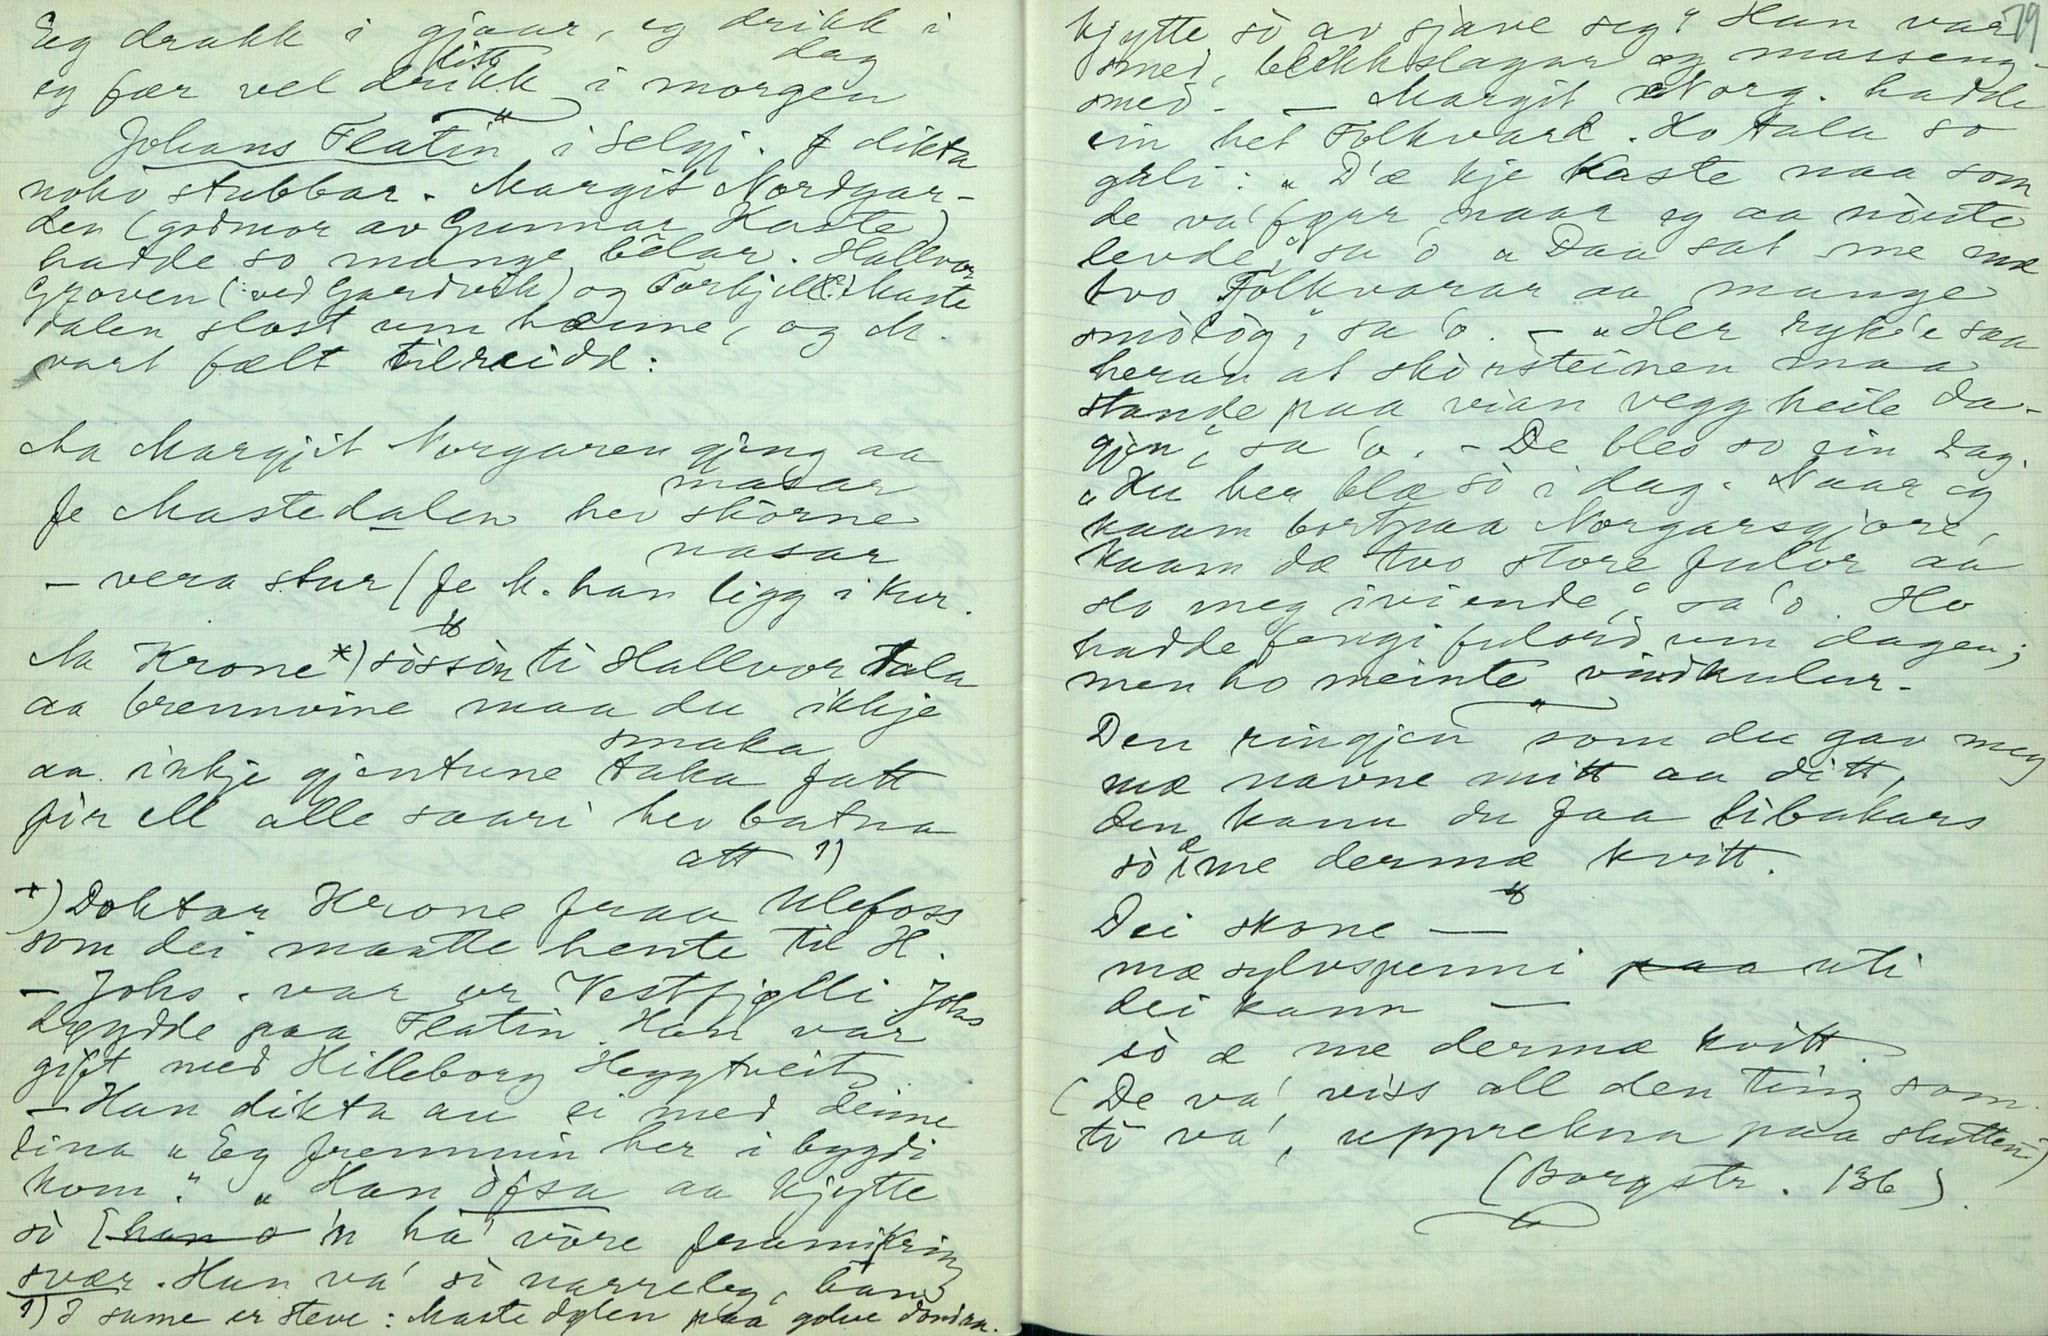 Eg drakk i gjaar, eg drikk i
dag
eg fær vel drikk i morgen
Johans Flatin i Selgj. dikta
noko stubbar. Margit Nordgar-
den (godmor av Gunnar Kaste)
hadde so mange bêlar. Hallvor
Groven (: ved Gardvik) og Torkjell Maste
dalen slost um henne, og M.
vart fælt tilreidd:
Aa Margjit Norgaren gjeng aa
masar
fe Mastedalen hev skorne
nasar
– vera stur (fe M. han ligg i kur.
Aa Krone *) sossön ti Hallvor tala
aa brennvine maa du ikkje
smaka
aa inkje gjentune taka fatt
fir ell alle saari hev batna
att 1)
*) Doktar Krone fraa Ulefoss
som dei maatte hente til H.
– Johs. var or Vestfjelli Johs
bygdde paa Flatin. Han var
gift med Hilleborg Heggtveit
– Han dikta au ei med deime
lina "Eg fremmin her i bygdi
kom." "Han öfsa aa kjytte
sö [han o 'n ha' vöre framikring
svær. Han va' sö narreleg, han
1) I same er steve: Mastedalen paa golve
79
kjytte sö av sjave seg." Han var
smed, blikkslagar og masseng-
smed. – Margit Norg. hadde
ein het Folkvard. Ho tala so
gali: "D'æ kje Kaste naa som
de va' fyrr naar eg aa
levde," sa 'o "Daa sat me mæ
tvo Folkvarar aa mange
smolog," sa 'o. – "Her ryk'e saa
heran at skorsteinen maa
stande paa vian vegg heile da-
gjen", sa 'o. – De bles so ein dag.
"Hu her blæ sö i dag. Naar eg
kaam bortpaa Norgarsgjore,
kaam dæ tvo store fulor aa
slo meg ivi ende," sa 'o. Ho
hadde fengi fulord um dagen;
men ho meinte vindkulur.
Den ringjen som du gav meg
mæ navne mitt aa ditt,
den kann du faa tibakars
sö æ me dermæ kvitt.
Dei skone —
mæ sylvspenni paa uti
dei kann —
sö æ me dermæ kvitt.
(De va' viss all den ting som
ti va', upprekna paa slutten)
(Borgstr. 136).